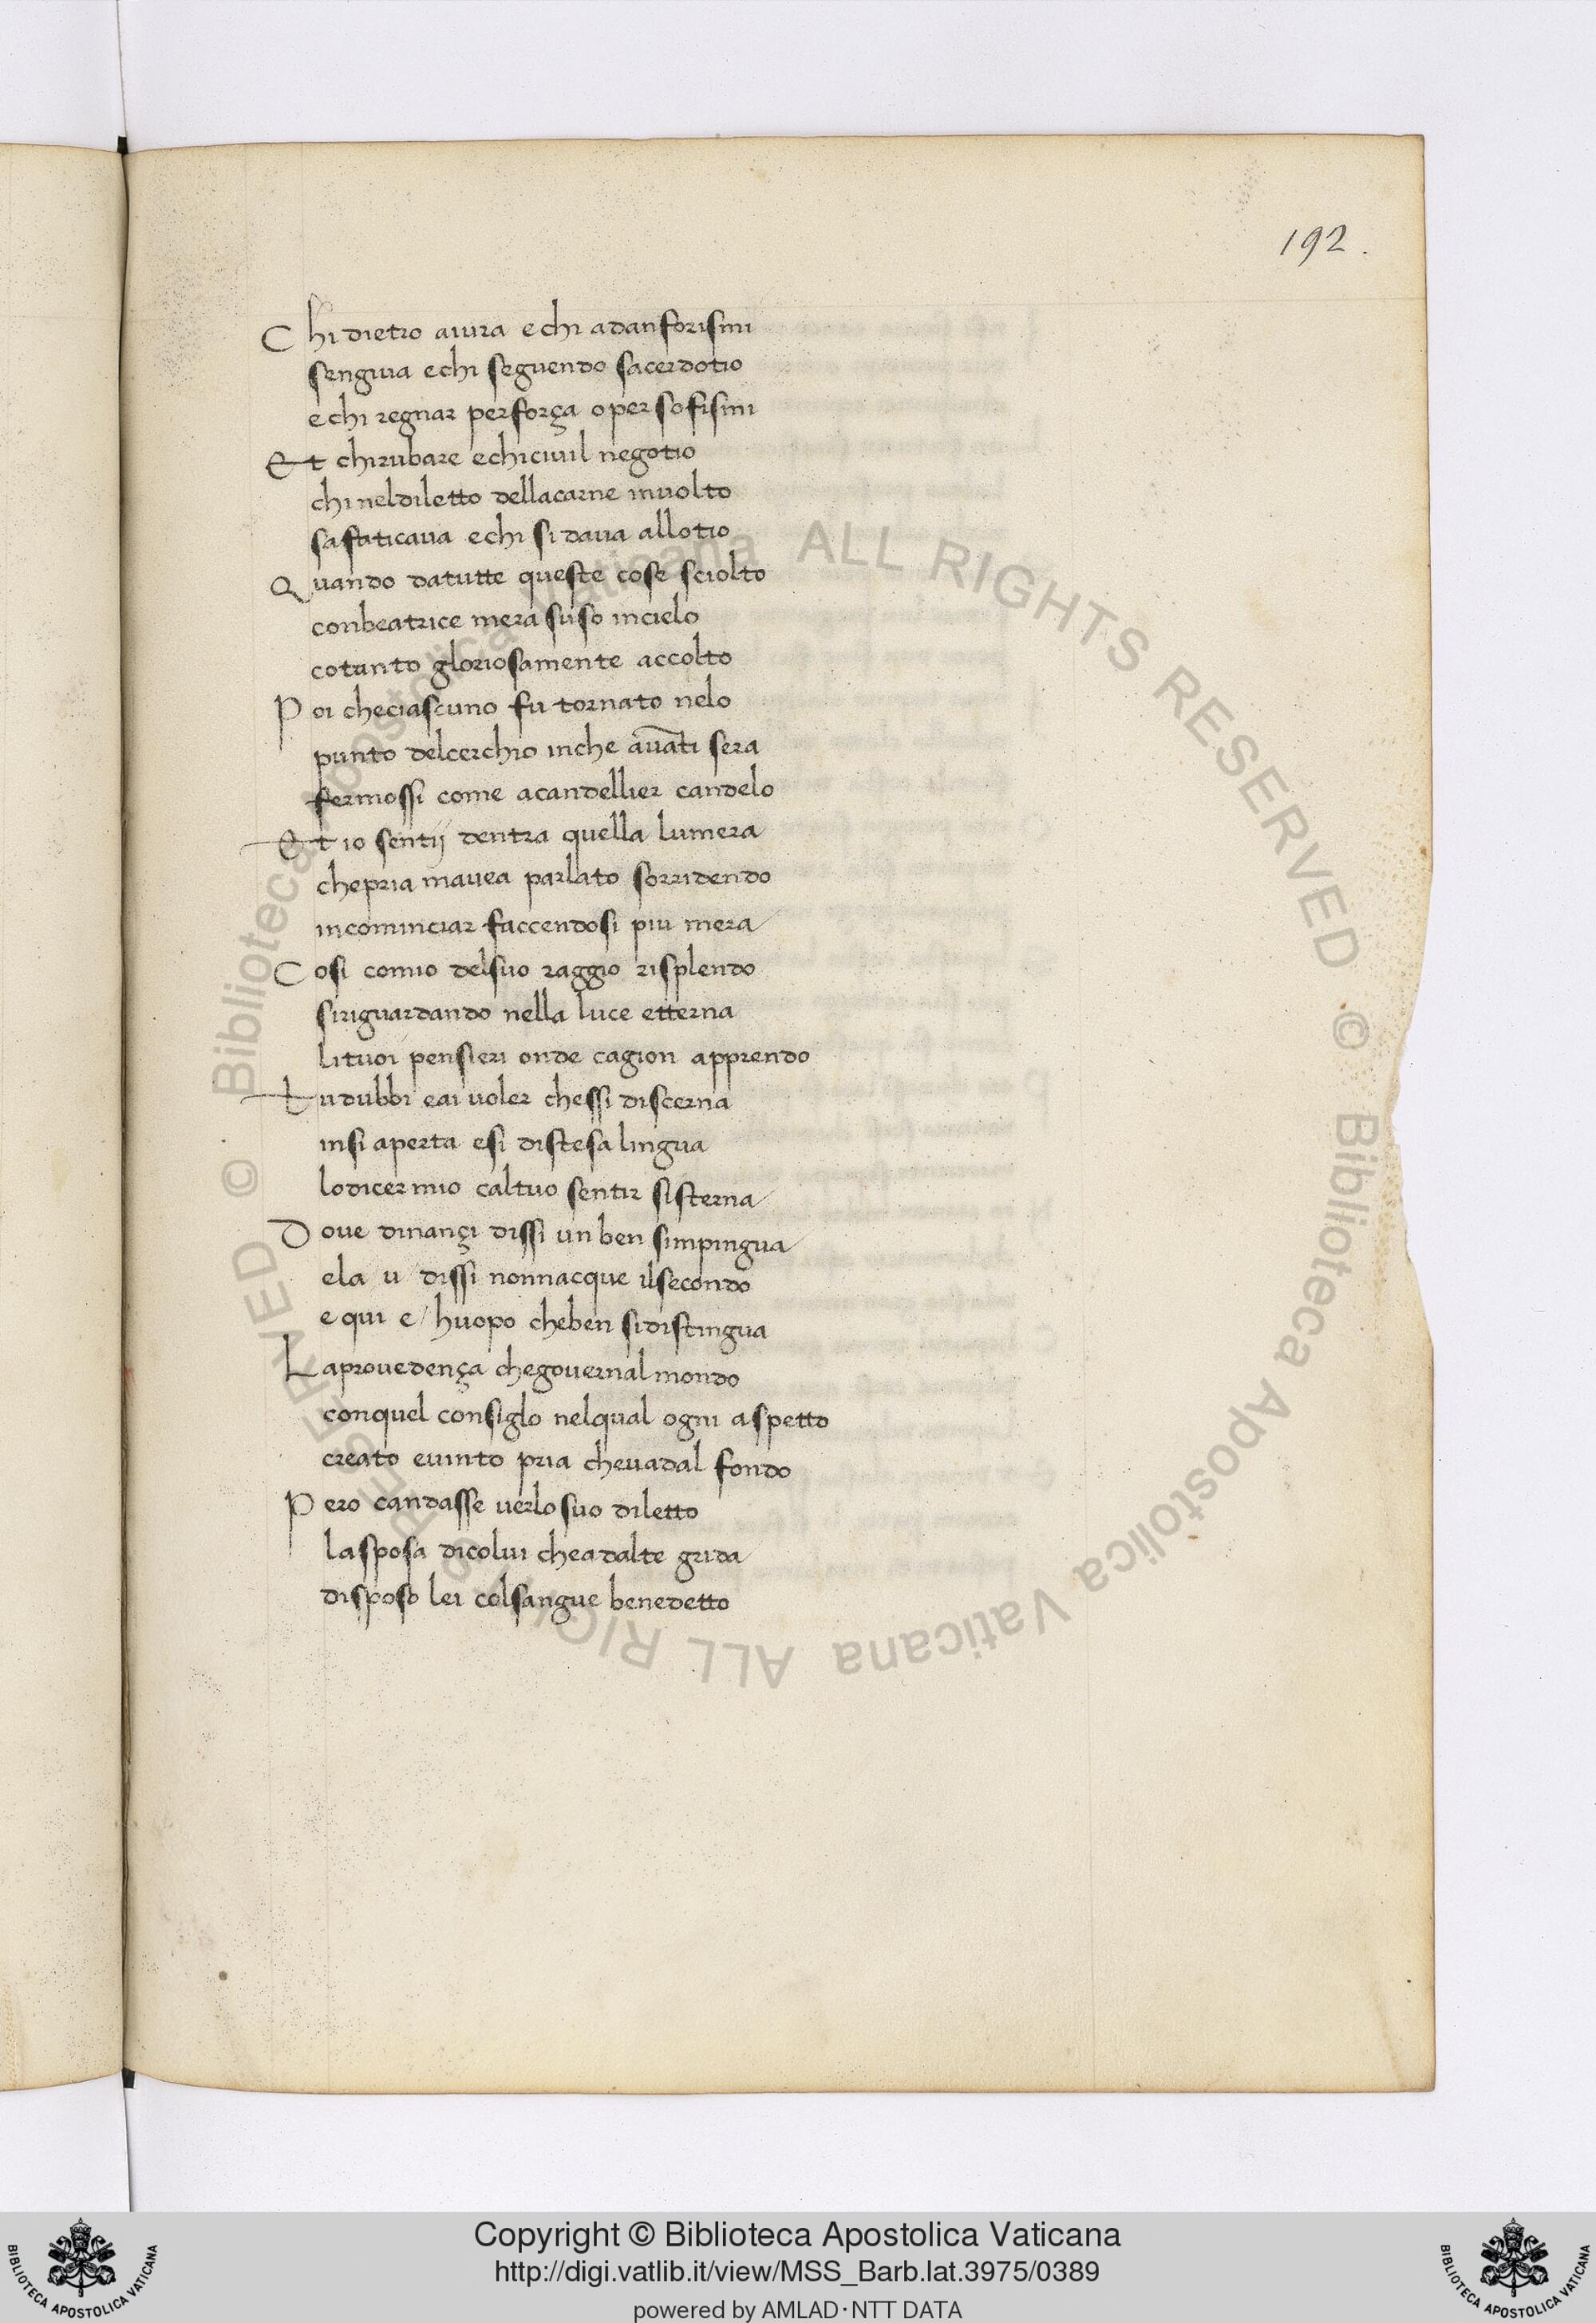 192.
Chi dietro aiura echi adanforismi
sengiua echi seguendo sacerdotio
echi regnar perforça oper sofismi
Et chirubare echiciuil negotio
chi neldiletto dellacarne inuolto
safaticaua echi sidaua allotio
Quando datutte queste cose sciolto
conbeatrice mera suso incielo
cotanto gloriosamente accolto
Poi checiascuno fu tornato nelo
punto delcerchio inche auāti sera
fermossi come acandellier candelo
Et io sentij dentra quella lumera
chepria mauea parlato sorridendo
incominciar faccendosi piu mera
Cosi comio delsuo raggio risplendo
siriguardando nella luce etterna
lituoi pensieri onde cagion apprendo
Tu dubbi eai uoler chessi discerna
insi aperta esi distesa lingua
lodicer mio caltuo sentir sisterna
Doue dinançi dissi un ben simpingua
ela / u / dissi nonnacque ilsecondo
e qui e / huopo cheben sidistingua
Laprouedença chegouernal mondo
conquel consiglo nelqual ogni aspetto
creato euinto pria cheuadal fondo
Pero candasse uerlo suo diletto
lasposa dicolui cheadalte grida
disposo lei colsangue benedetto
© Biblioteca Apostolica Vaticana ALL RIGHTS RESERVED © Biblioteca Apostolica Vaticana ALL RIGHTS RESERVED
Copyright © Biblioteca Apostolica Vaticana
http://digi.vatlib.it/view/MSS_Barb.lat.3975/0389
powered by AMLAD·NTT DATA
BIBLIOTECA APOSTOLICA VATICANA
BIBLIOTECA APOSTOLICA VATICANA